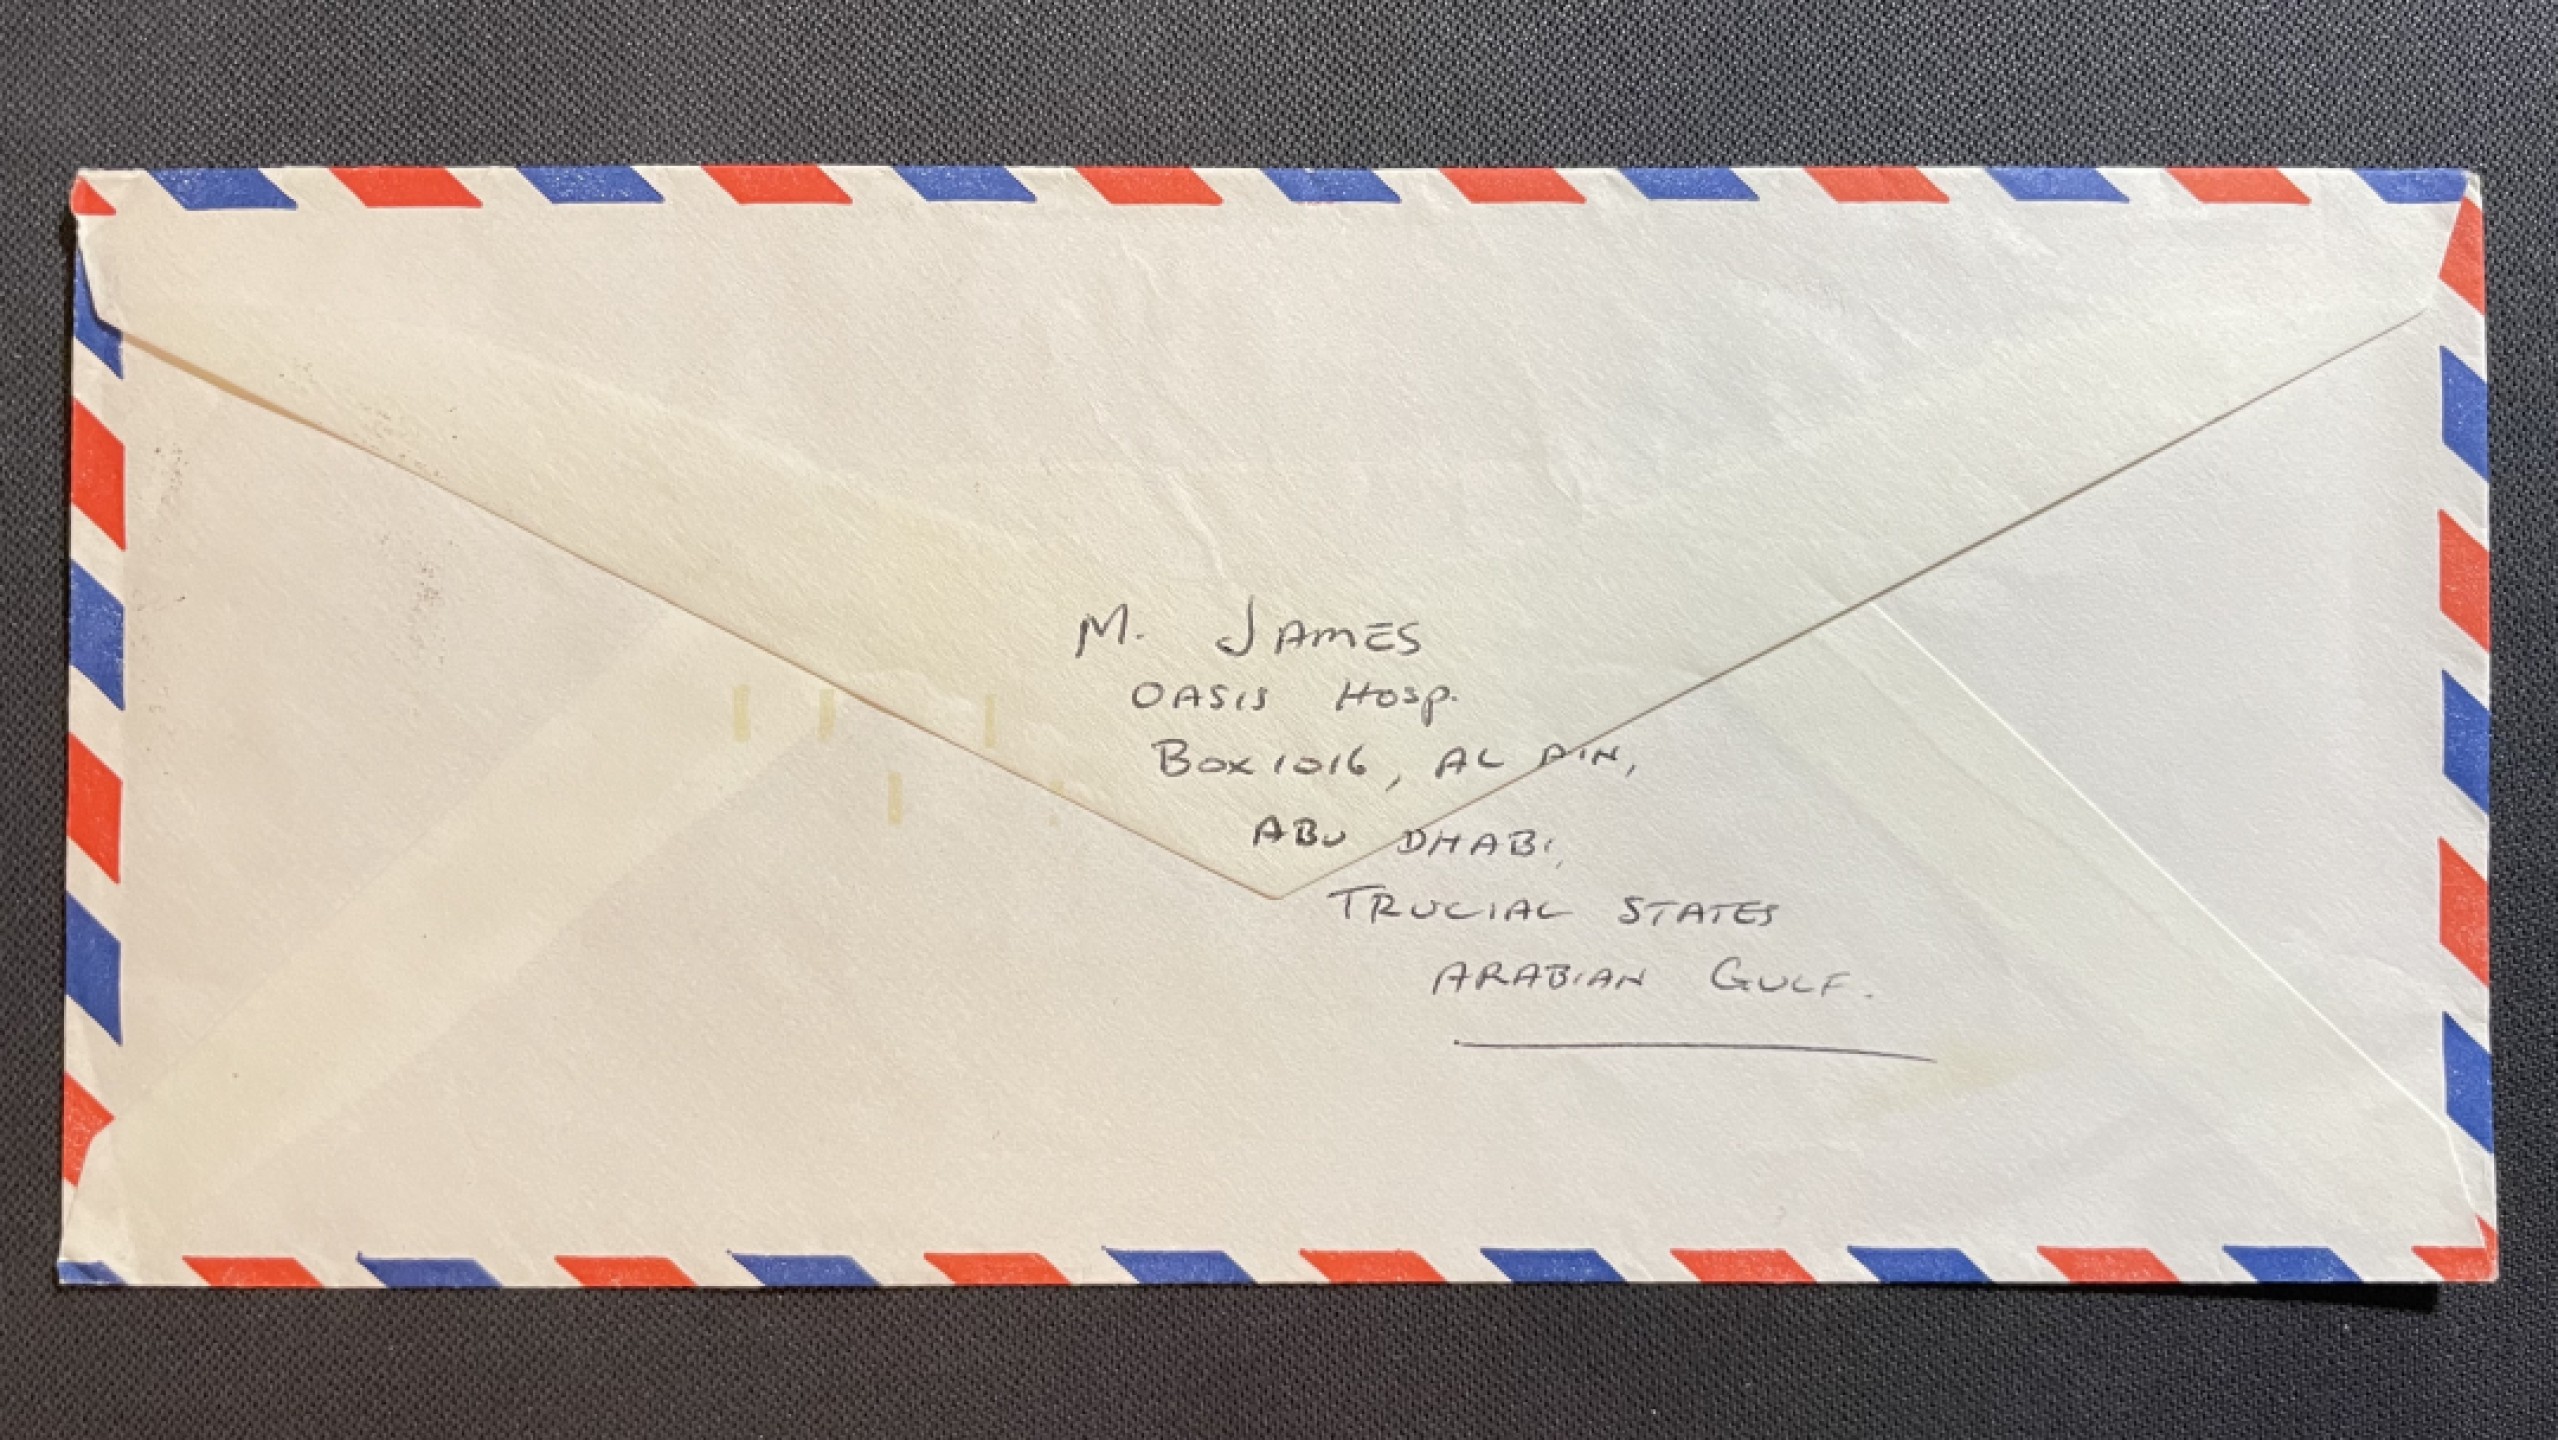 M. JAMES
OASIS HOSP.
BOX 1016, AL AIN,
ABU DHABI,
TRUCIAL STATES
ARABIAN GULF.